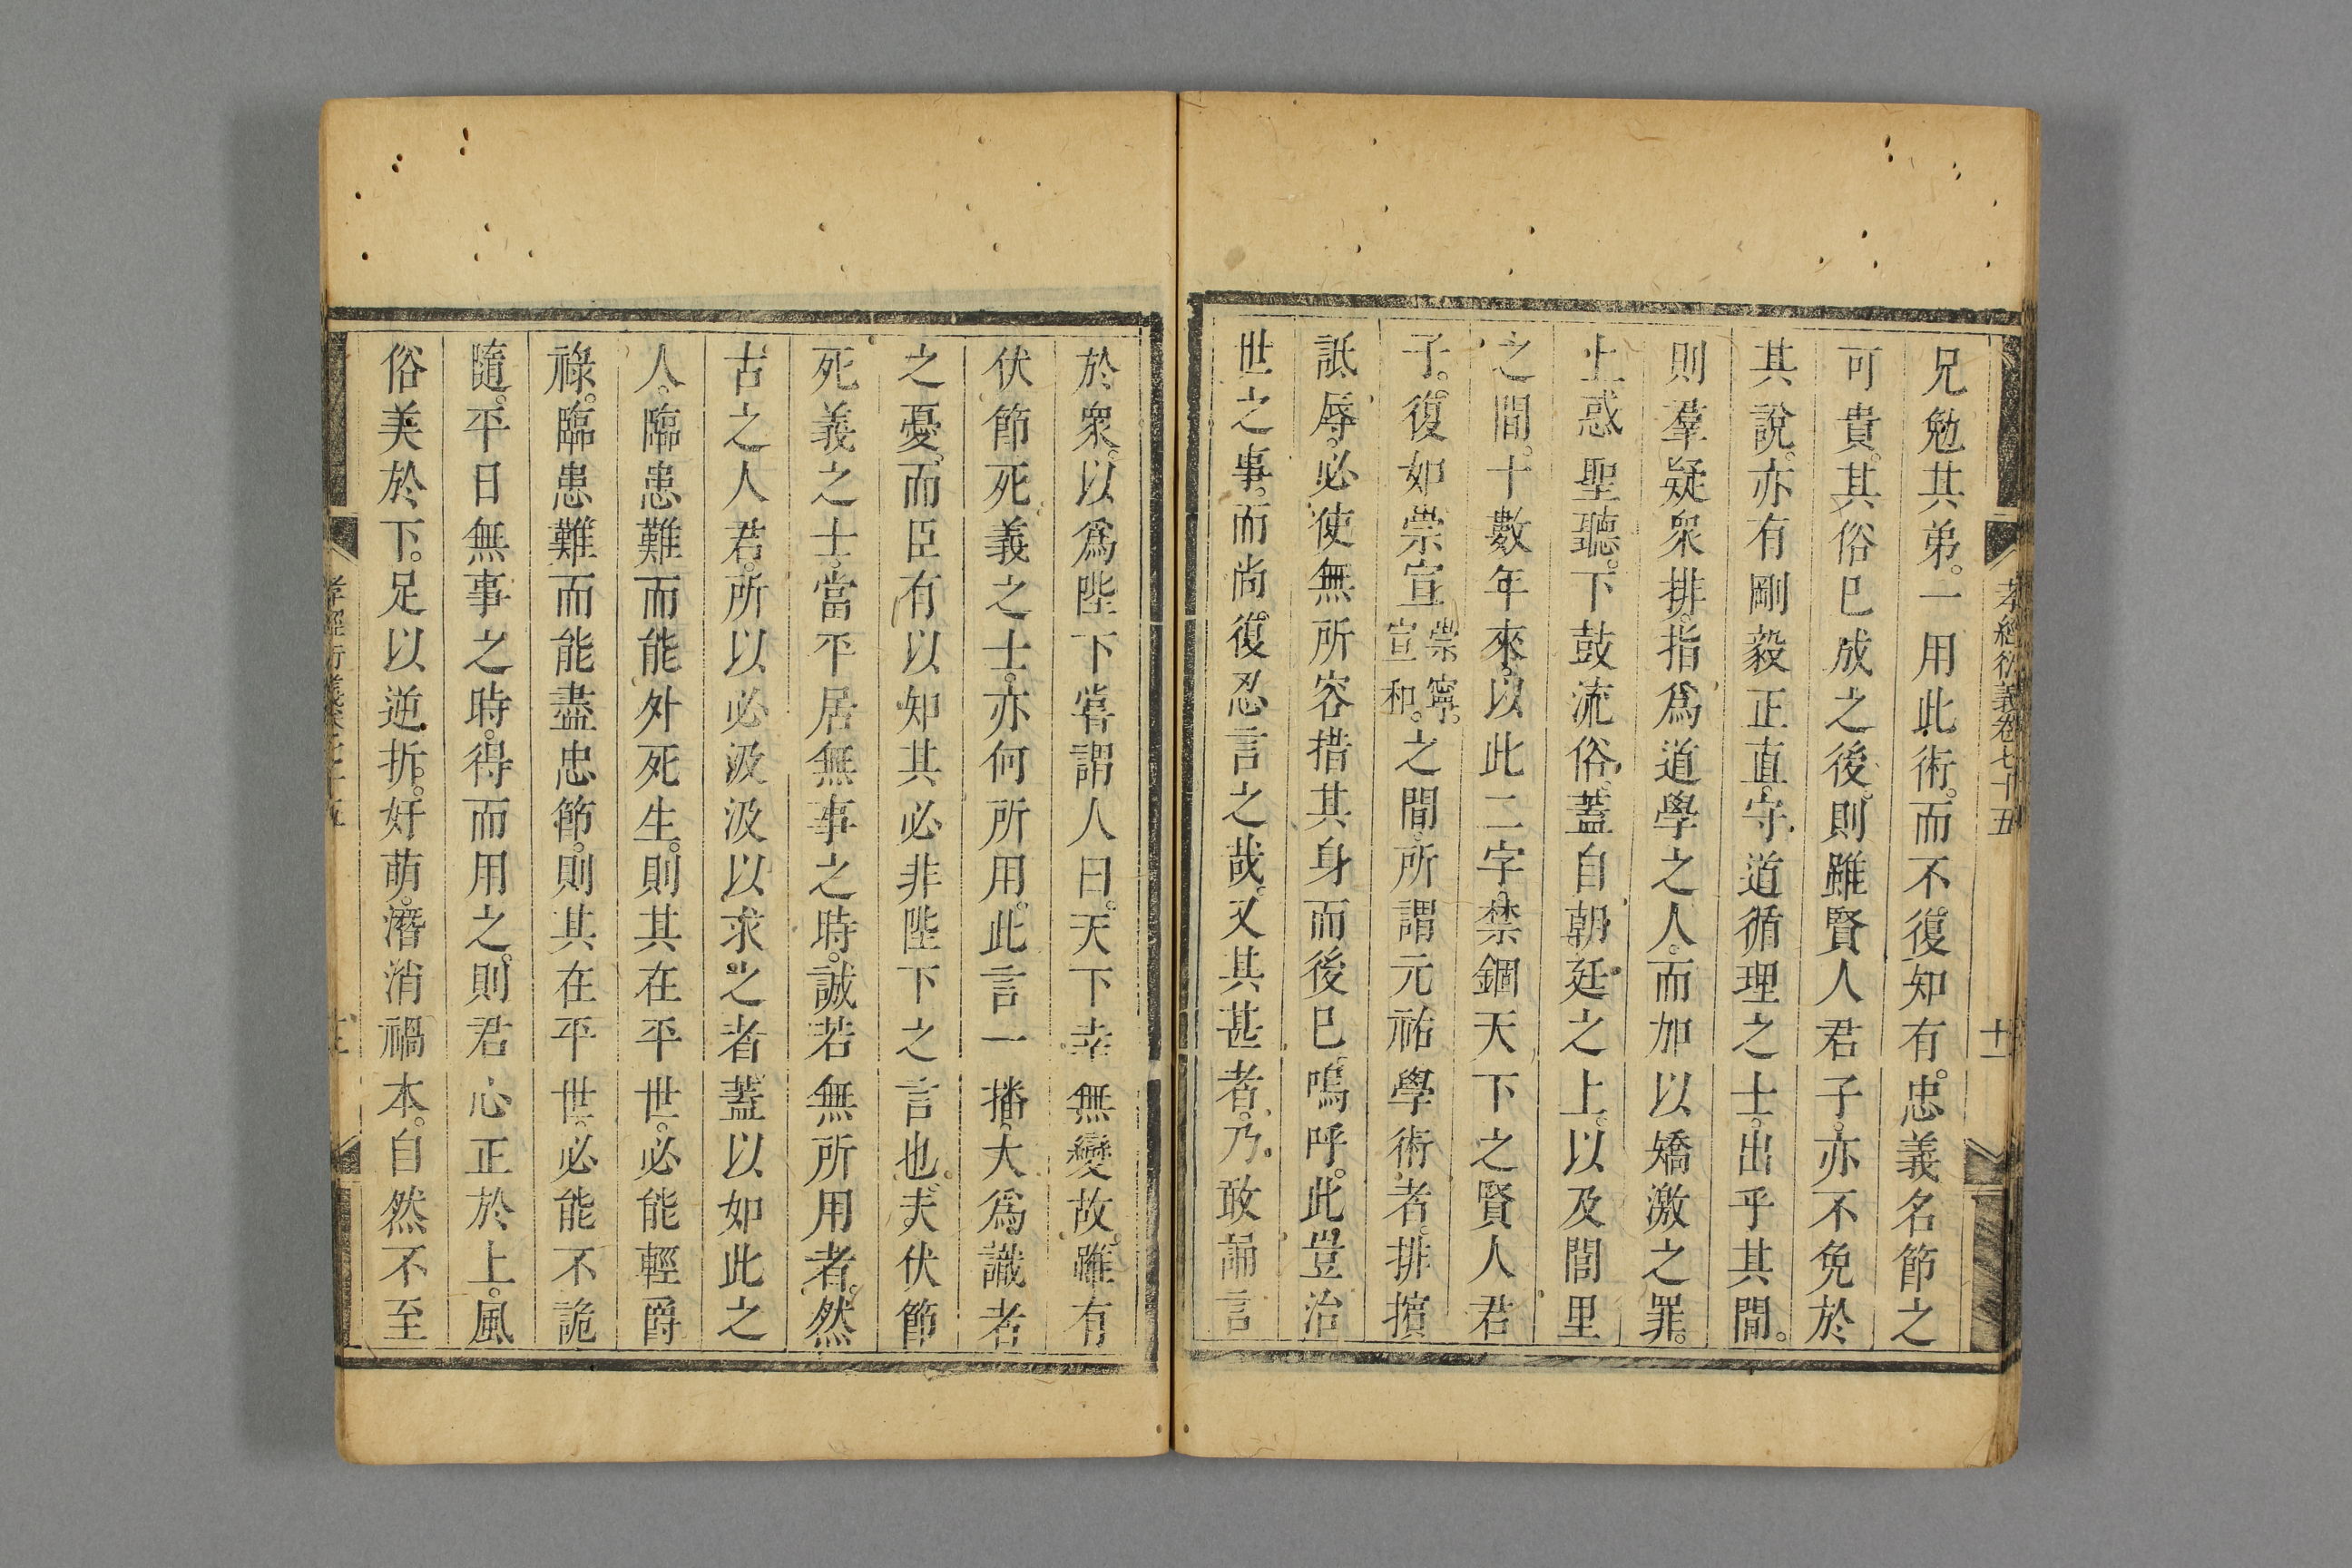 孝經衍義卷七十五 十一
兄勉其弟。一用此術。而不復知有忠義名節之
可貴。其俗已成之後。則雖賢人君子。亦不免於
其說。亦有剛毅正直。守道循理之士。出乎其間。
則羣疑衆排。指爲道學之人。而加以矯激之罪。
上惑聖聽。下鼓流俗。蓋自朝廷之上。以及閭里
之間。十數年來。以此二字。禁錮天下之賢人君
子。復如崇宣崇寧。宣和。之間。所謂元祐學術者。排擯
詆辱。必使無所容措其身而後已。嗚呼。此豈治
世之事。而尚復忍言之哉。又其甚者。乃敢誦言
於衆。以爲陛下嘗謂人曰。天下幸無變故。雖有
伏節死義之士。亦何所用。此言一播。大爲識者
之憂。而臣有以知其必非陛下之言也。夫伏節
死義之士。當平居無事之時。誠若無所用者。然
古之人君。所以必汲汲以求之者。蓋以如此之
人。臨患難而能外死生。則其在平世。必能輕爵
祿。臨患難而能盡忠節。則其在平世。必能不詭
隨。平日無事之時。得而用之。則君心正於上。風
俗美於下。足以逆折。奸萌。潛消禍本。自然不至
孝經衍義卷七十五